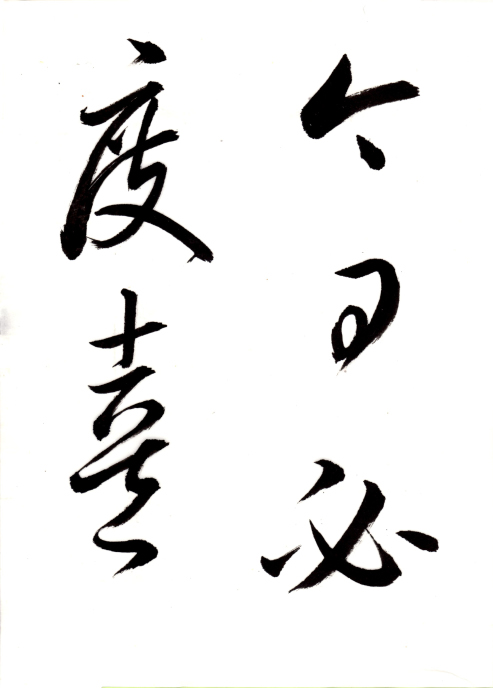 今日必
度喜